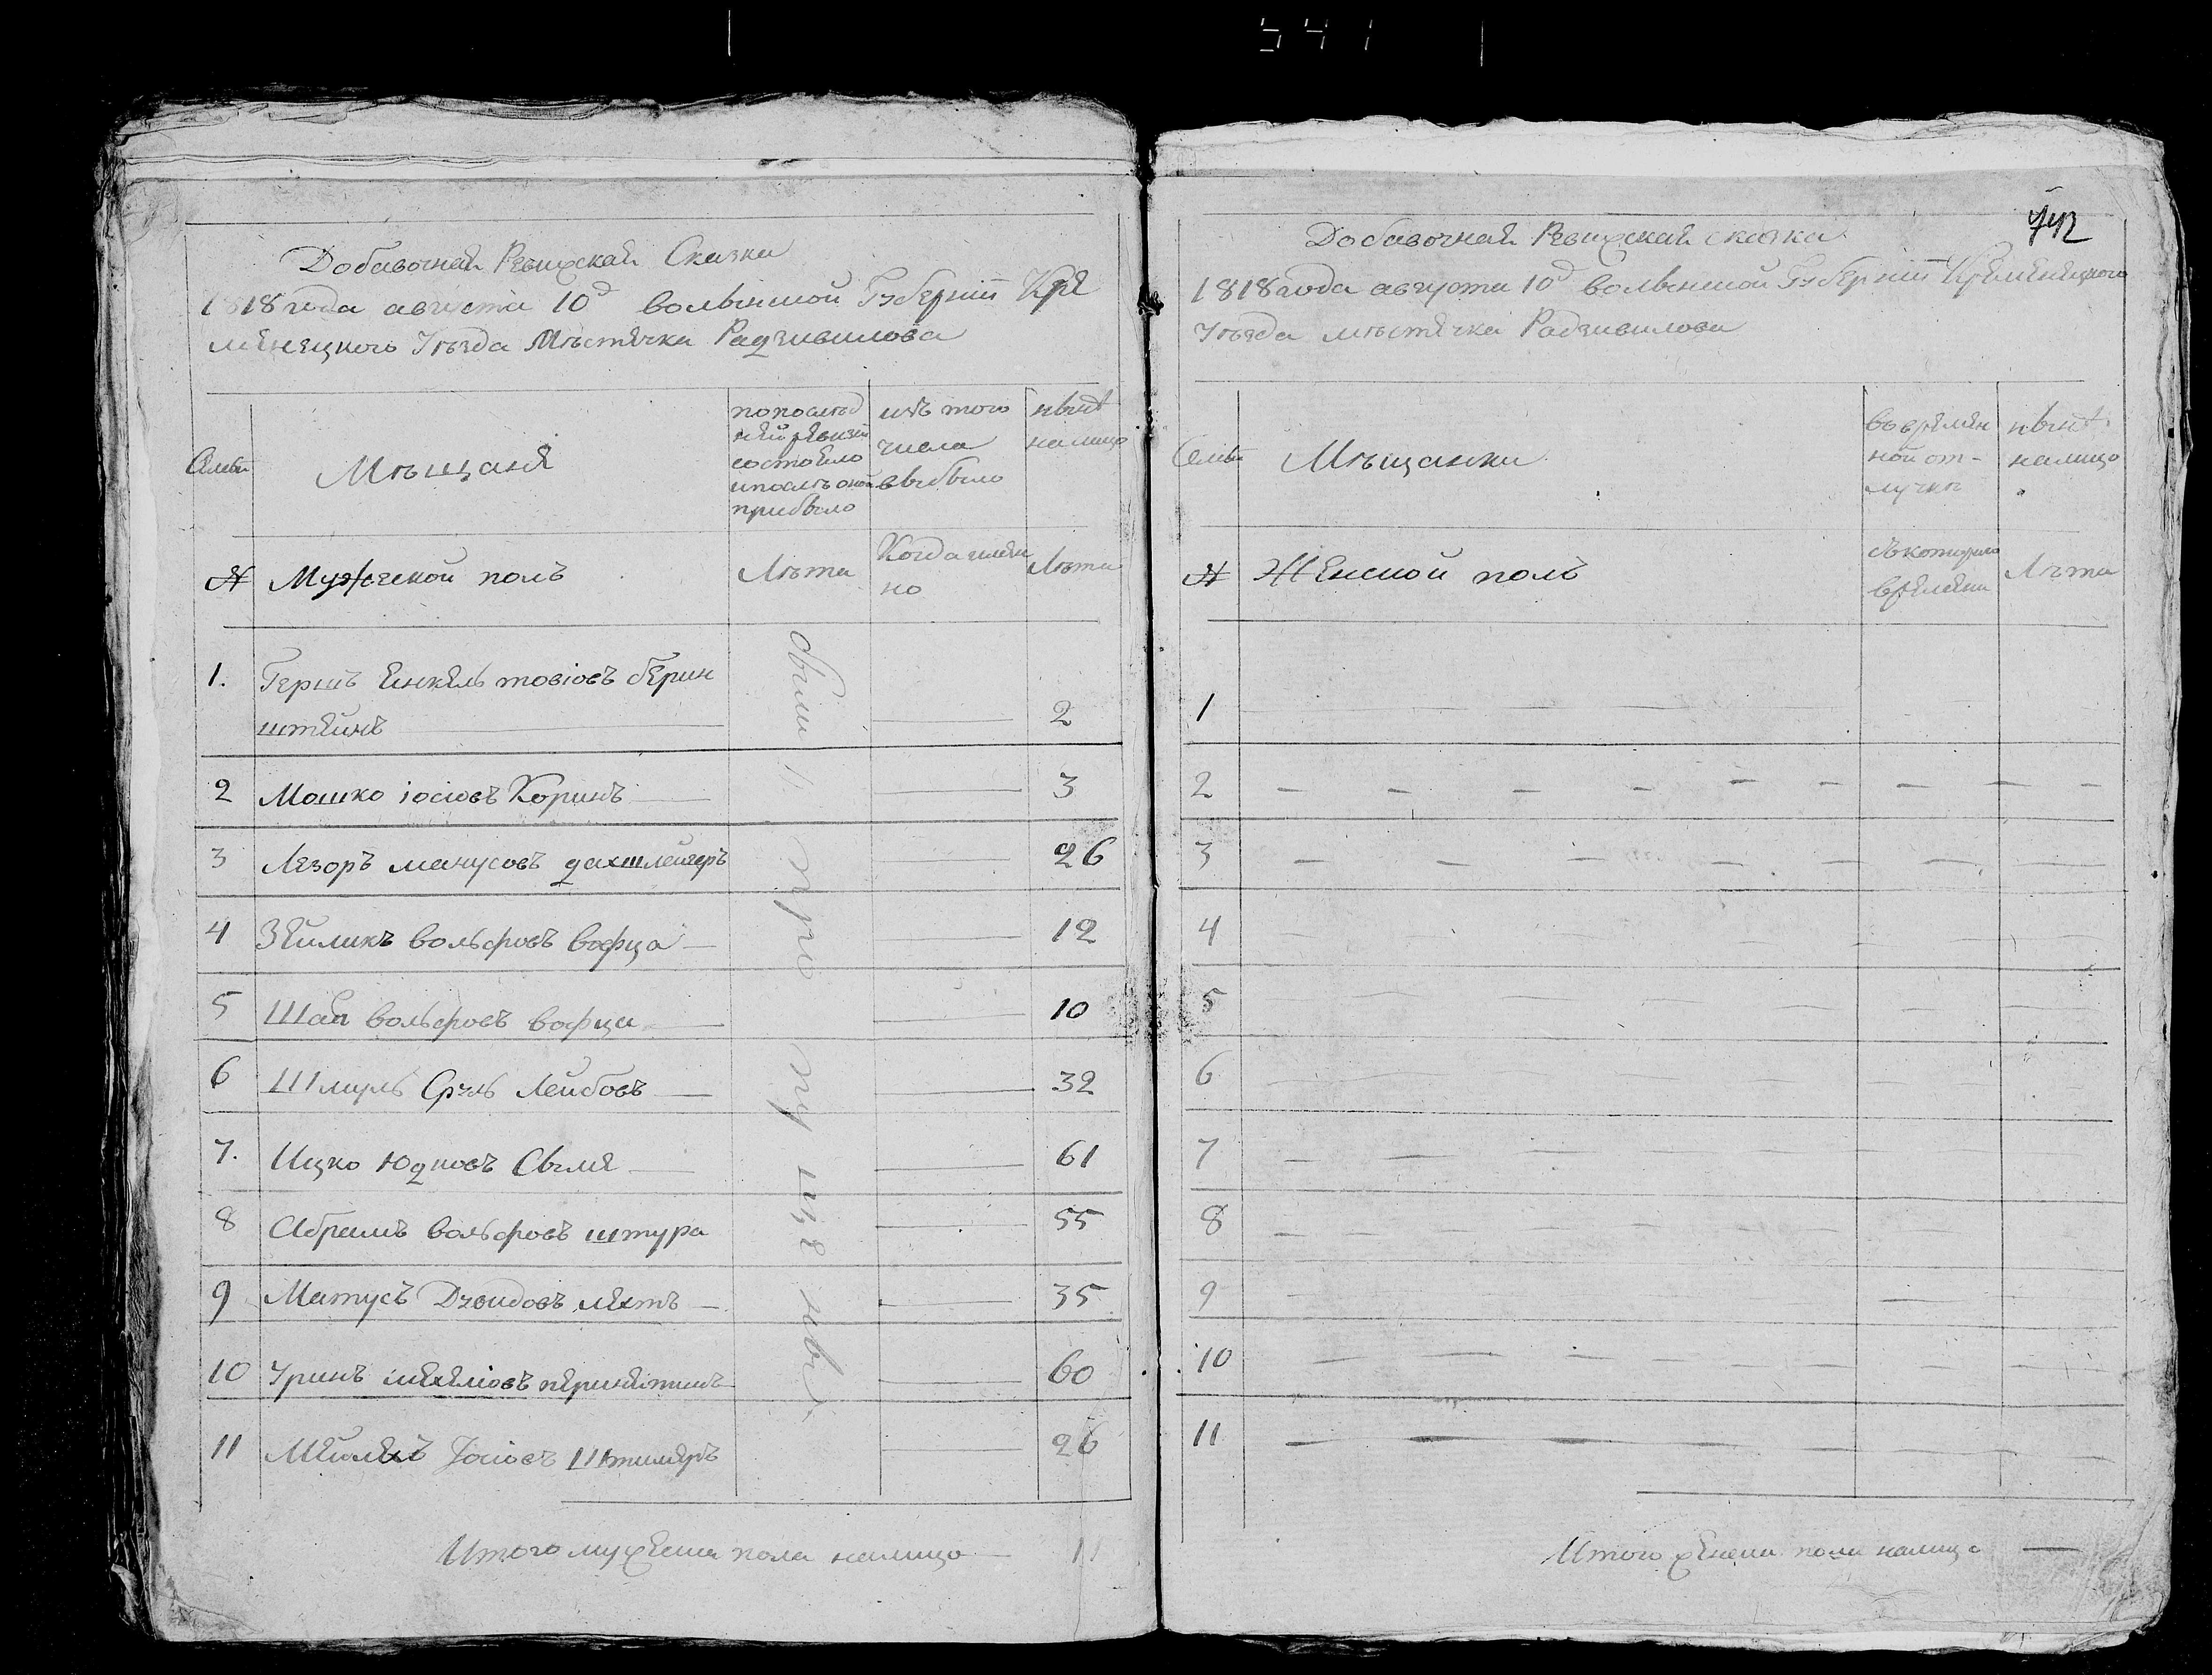 541
Добавочная Ревизская Сказка
1818 года августа 10д волынской Губернїи Кре
менецкого Уѣзда Мѣстечка Радзивилова
Семьи
Мѣщане
по послѣд
ней ревизїи
состояло
и послѣ оной
прибыло
изъ того
числа
выбыло
нынѣ
налицо
№
Мужеской полъ
Лѣта
Когда имен
но
Лѣта
1. Гершъ Енкель товіовъ берин
штейнъ 2
2 Мошко іосіовъ Коринъ 3
3 Лезоръ манусовъ дахшлейгеръ 26
4 Зейликъ вольфовъ вофца 12
5 Шая вольфовъ вофца 10
6 Шмуль Сруль Лейбовъ 32
7. Ицко Юдковъ 61
8 Абрамъ вольфовъ штура 55
9 Матусъ Дувидовъ лехтъ 35
10 60
11 26
были пропущены
Итого мужеска пола налицо 11
Добавочная Ревизская сказка
1818 года августа 10д волынской Губернїи Кременецкого
Уѣзда мѣстечка Радзивилова
Семьи
Мѣщанки
во времен
ной от-
лучкѣ
нынѣ
налицо
№
Женской полъ
съ которого
времени
Лѣта
1
2
3
4
5
6
7
8
9
10
11
Итого женска пола налицо —